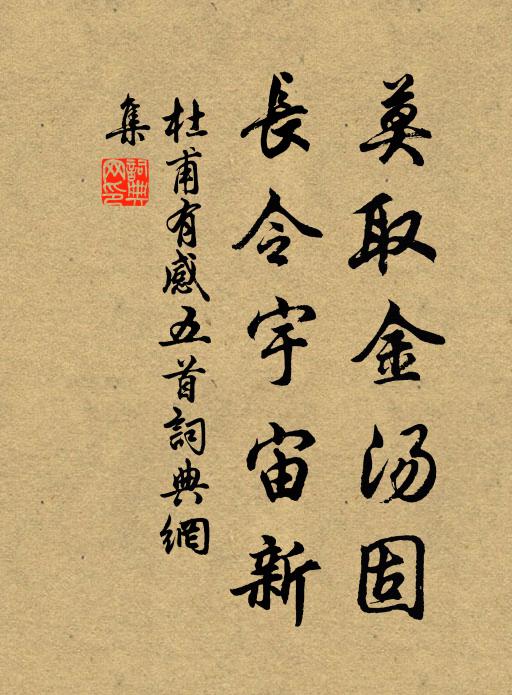 莫取金湯固
長令宇宙新
杜甫有感五首詞典網
集
詞典
网印